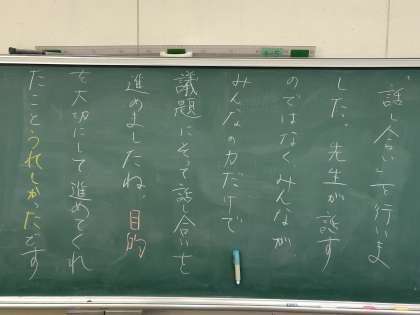 「話し合い」を行いま
した。先生が話す
のではなくみんなが
みんなの力だけで
議題にそって話し合いを
進めましたね。目的
を大切にして進めてくれ
たことうれしかったです